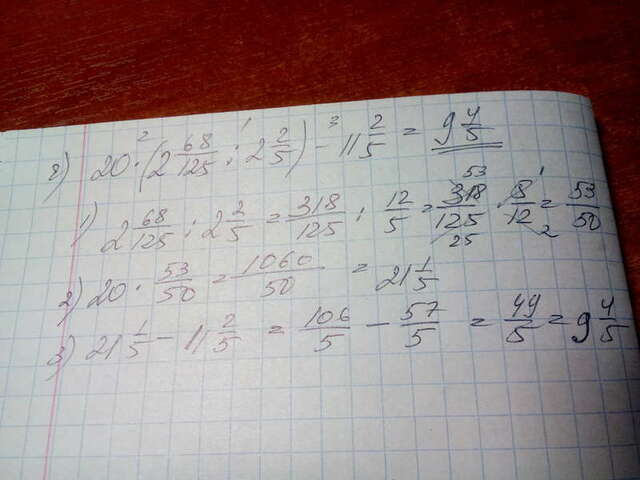 г) 20 · (2 68/125 : 2 2/5) - 11 2/5 = 9 4/5
1) 2 68/125 : 2 2/5 = 318/125 : 12/5 = 318/125 · 5/12 = 53/50
2) 20 · 53/50 = 1060/50 = 21 1/5
3) 21 1/5 - 11 2/5 = 106/5 - 57/5 = 49/5 = 9 4/5